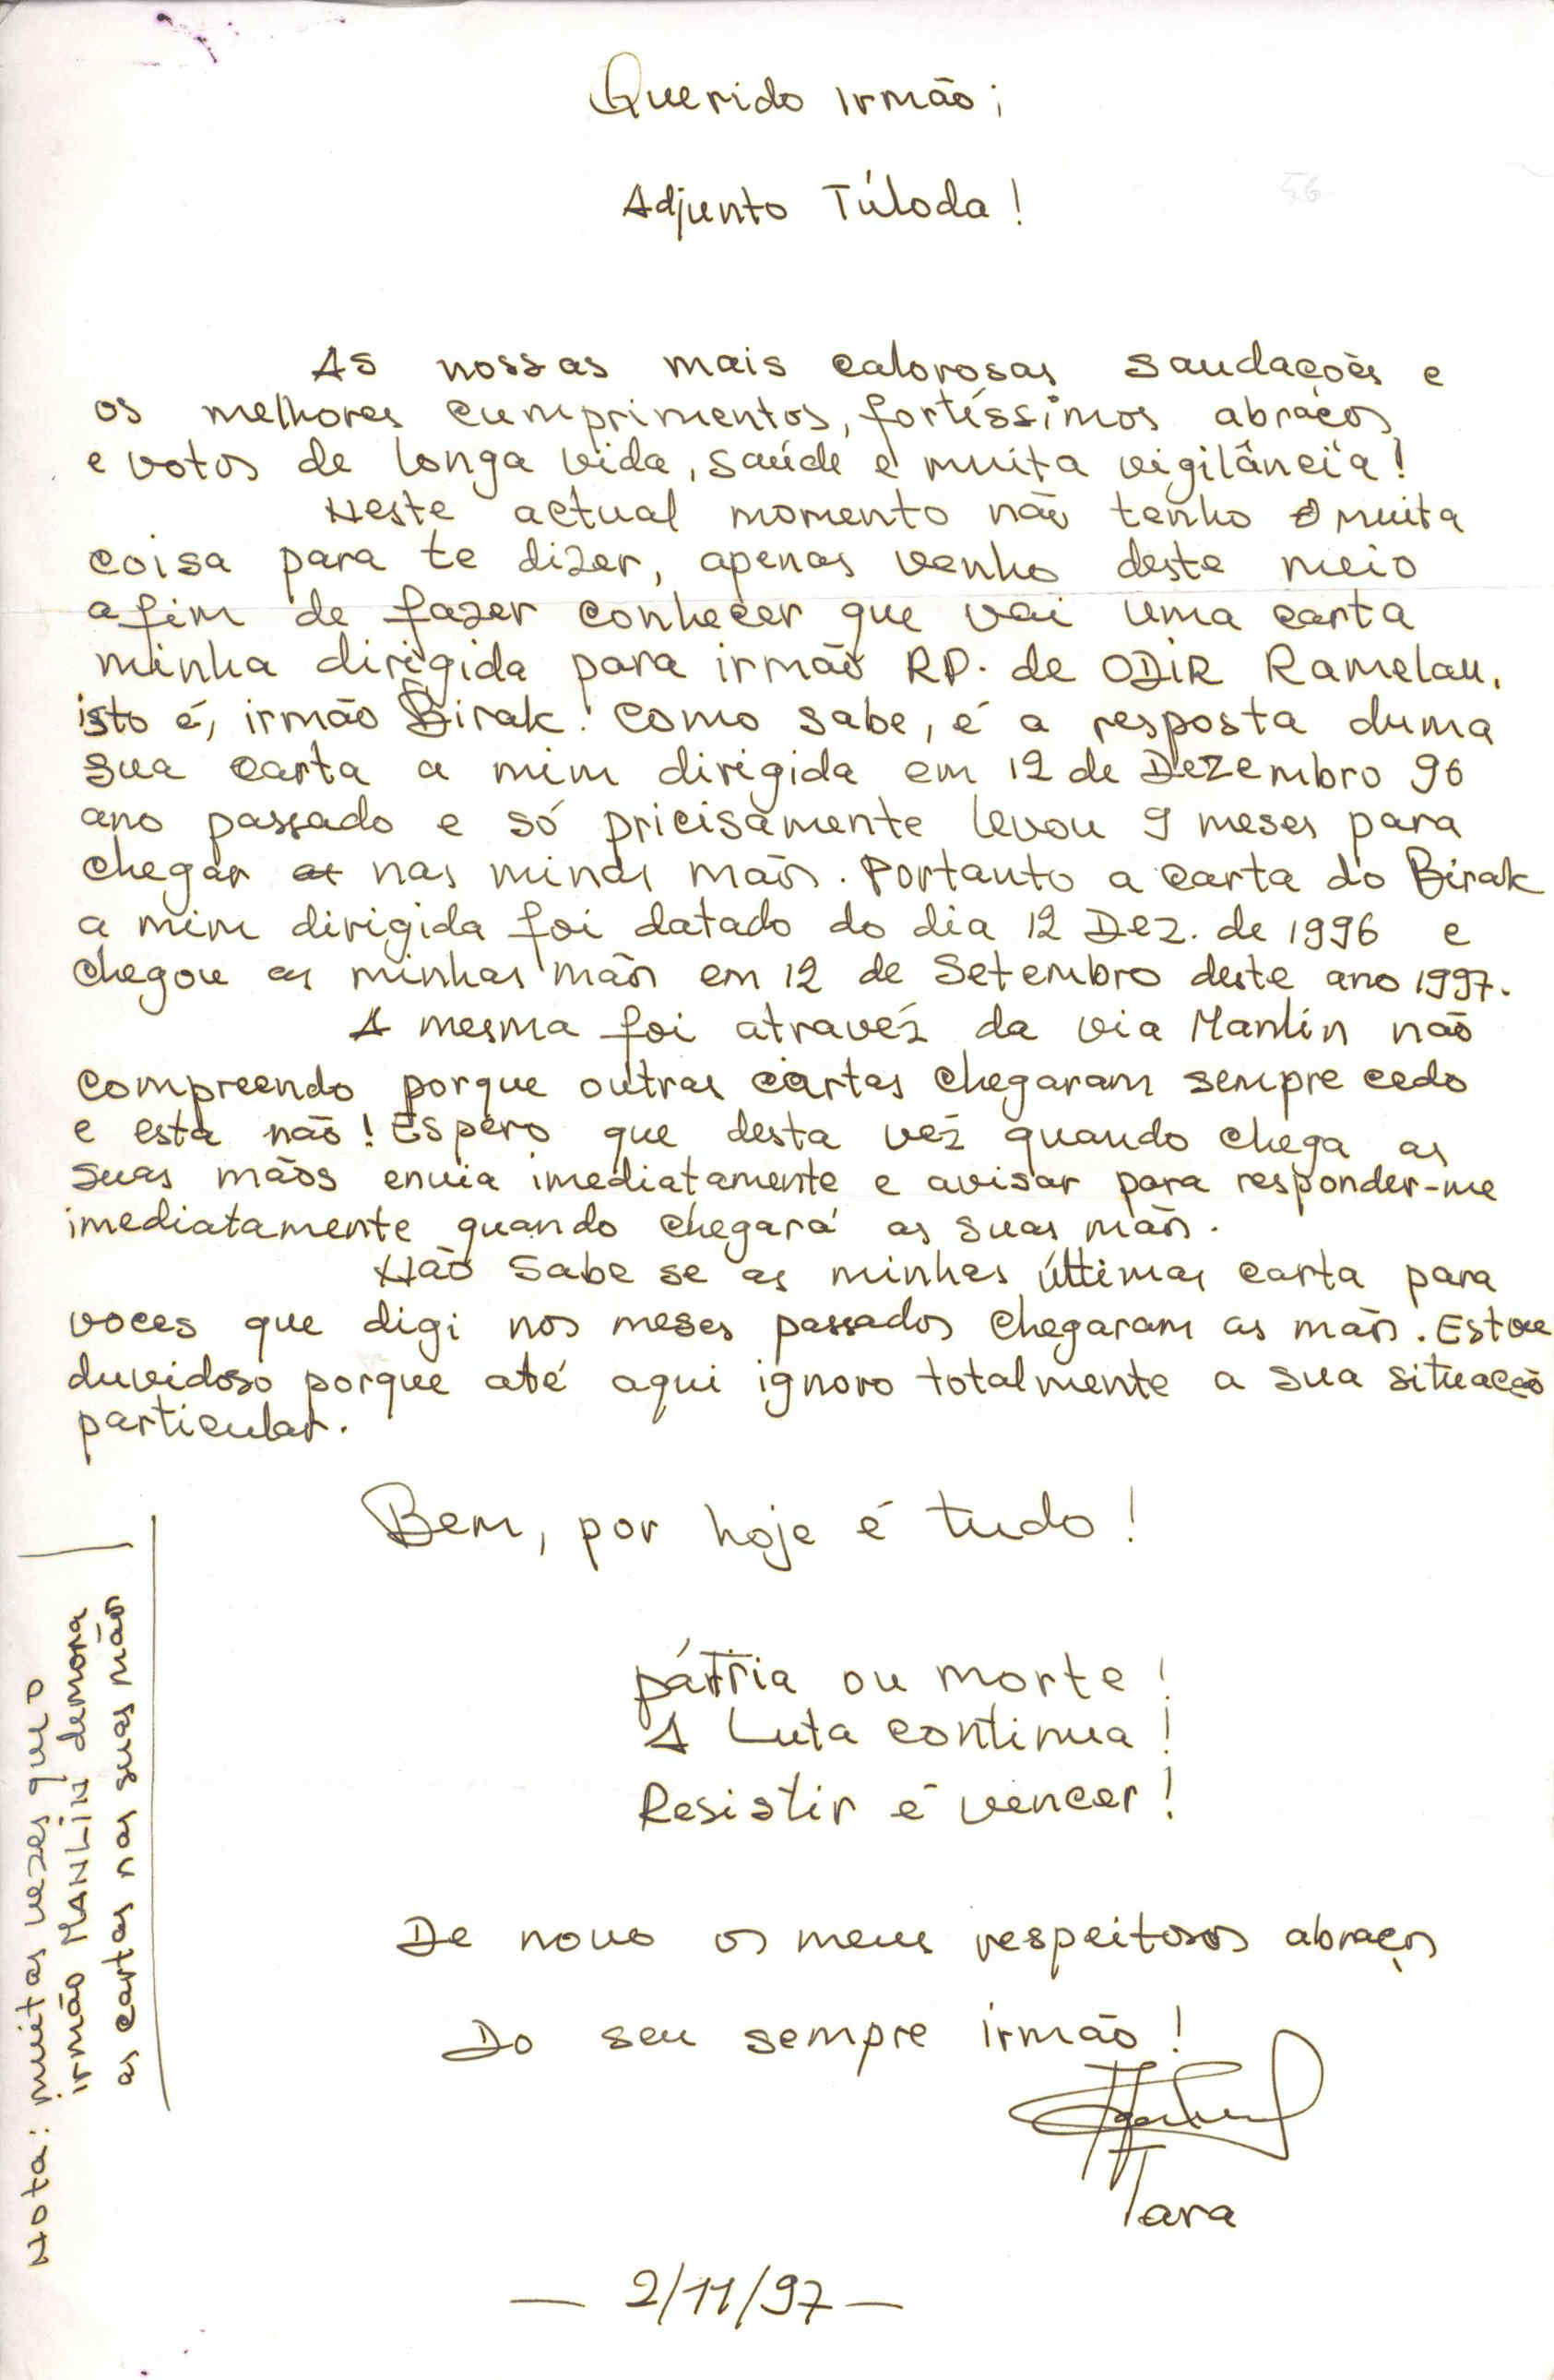 Querido irmão;
Adjunto Túloda!
As nossas mais calorosas saudações e
os melhores cumprimentos, fortíssimos abraços
e votos de longa vida, saúde e muita vigilância!
Neste actual momento não tenho muita
coisa para te dizer, apenas venho deste meio
a fim de fazer conhecer que vai uma carta
minha dirigida para irmão RP. de ODIR Ramelau,
isto é, irmão Birak. Como sabe, é a resposta duma
sua carta a mim dirigida em 12 de Dezembro 96
ano passado e só pricisamente levou 9 meses para
chegar nas minas mãos. Portanto a carta do Birak
a mim dirigida foi datado do dia 12 Dez. de 1996 e
chegou as minhas mãos em 12 de Setembro deste ano 1997.
A mesma foi atravéz da via Manlin não
compreendo porque outras cartas chegaram sempre cedo
e esta não! Espero que desta vez quando chega as
suas mãos envia imediatamente e avisar para responder-me
imediatamente quando chegará as suas mãos.
Não sabe se as minhas últimas carta para
voces que digi nos meses passados chegaram as mãos. Estou
duvidoso porque até aqui ignoro totalmente a sua situação
particular.
Bem, por hoje é tudo!
pátria ou morte!
A Luta continua!
Resistir é vencer!
De novo os meus respeitosos abraços
Do seu sempre irmão!
Tara
— 2/11/97 —
Nota: muitas vezes que o
irmão MANLIN demora
as cartas nas suas mãos